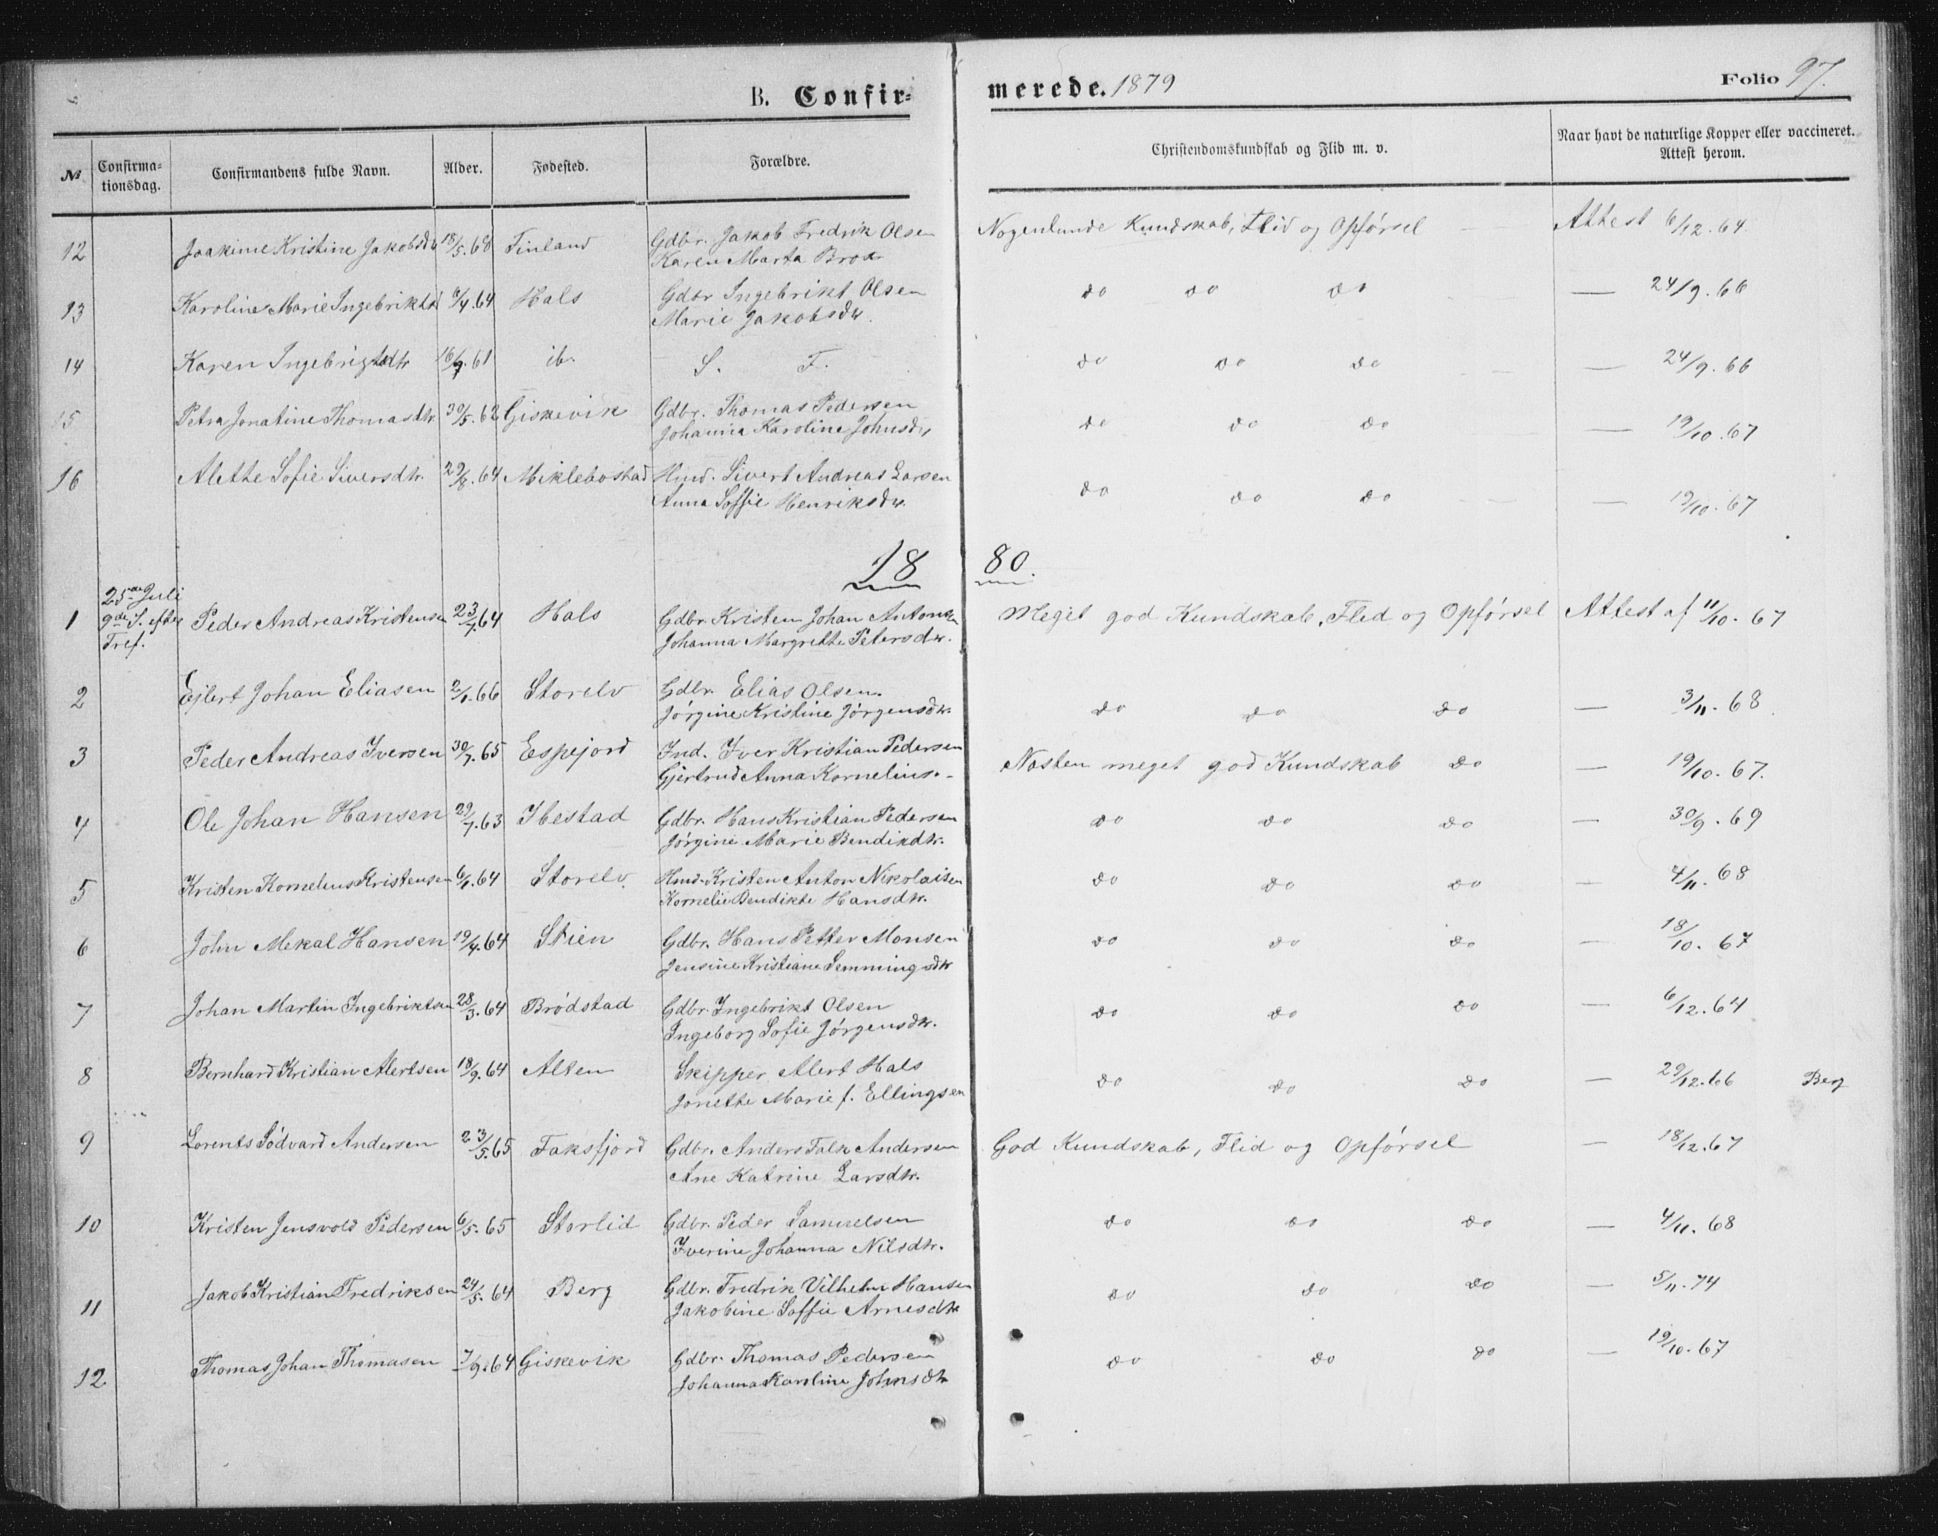 B. Confir-
merede. 1879
Folio 97.
№ Confirma-tionsdag. Confirmandens fulde Navn. Alder. Fødested. Forældre. Christendomskundskab og Flid m. v. Naar havt de naturlige Kopper eller vaccineret. Attest herom.
12 Joakime Kristine Jakobsdtr 18/5.68 Finland Gdbr. Jakob Fredrik Olsen Nogenlunde Kundskab, Flid og Opførsel Attest 6/12.64
Karen Marta Brox
13 Karoline Marie Ingebriktsd 9/4.64 Hals Gdbr Ingebrikt Olsen do do do — 24/9.66
Marie Jakobsdtr.
14 Karen Ingebrigtsdtr 16/9.61 ib. S. F. do do do — 24/9.66
15 Petra Jonatine Thomasdtr. 30/5.62 Giskevik Gdbr. Thomas Pedersen do do do — 19/10.67
Johanna Karoline Johnsdtr
16 Alette Sofie Siversdtr. 29/8.64 Miklebostad Hmd. Sivert Andreas Larsen do do do — 19/10.67
Anna Soffie Henriksdtr.
18 80.
25de Juli
1 9de S. efter Peder Andreas Kristensen 23/7.64 Hals Gdbr. Kristen Johan Antonsen Meget god Kundskab, Flid og Opførsel Attest af 11/10.67
Tref. Johanna Margrethe Petersdtr.
2 Ejlert Johan Eliasen 2/1.66 Storelv Gdbr. Elias Olsen. do do do — 3/11.68
Jørgine Kristine Jørgensdtr.
3 Peder Andreas Iversen 30/7.65 Espejord Ind. Iver Kristian Pedersen Næsten meget god Kundskab do — 19/10.67.
Gjertrud Anna Kornelius.-
4 Ole Johan Hansen 29/7.63 Ibestad Gdbr. Hans Kristian Pedersen do do do — 30/9.69
Jørgine Marie Bendikdtr.
5 Kristen Kornelius Kristensen 6/1.64 Storelv. Hmd. Kristen Anton Nikolaisen do do do — 4/11.68
Kornelie Bendikte Hansdtr.
6 John Mekal Hansen 19/4.64 Stien Gdbr. Hans Petter Monsen do do do — 18/10.67
Jensine Kristiane Lemmingsdtr
7 Johan Martin Ingebriktsen 28/3.64 Brødstad Gdbr. Ingebrikt Olsen do do do — 6/12.64
Ingeborg Sofie Jørgensdtr.
8 Bernhard Kristian Alertsen 18/9.64 Alten Skipper Alert Hals do do do — 29/12.66 Berg
Jonette Marie f. Ellingsen
9 Lorents Sødvard Andersen 23/5.65 Faksfjord Gdbr. Anders Falk Andersen God Kundskab, Flid og Opførsel — 18/12.67
Ane Katrine Larsdtr.
10 Kristen Jensvold Pedersen 6/5.65 Storlid Gdbr. Peder Samuelsen do do do — 4/11.68
Iverine Johanna Nilsdtr.
11 Jakob Kristian Fredriksen 24/5.64 Berg Gdbr. Fredrik Vilhelm Hansen do do do — 5/11.74
Jakobine Soffie Arnesdtr
12 Thomas Johan Thomasen 7/9.64 Giskevik Gdbr. Thomas Pedersen do do do — 19/10.67
Johanna Karoline Johnsdtr